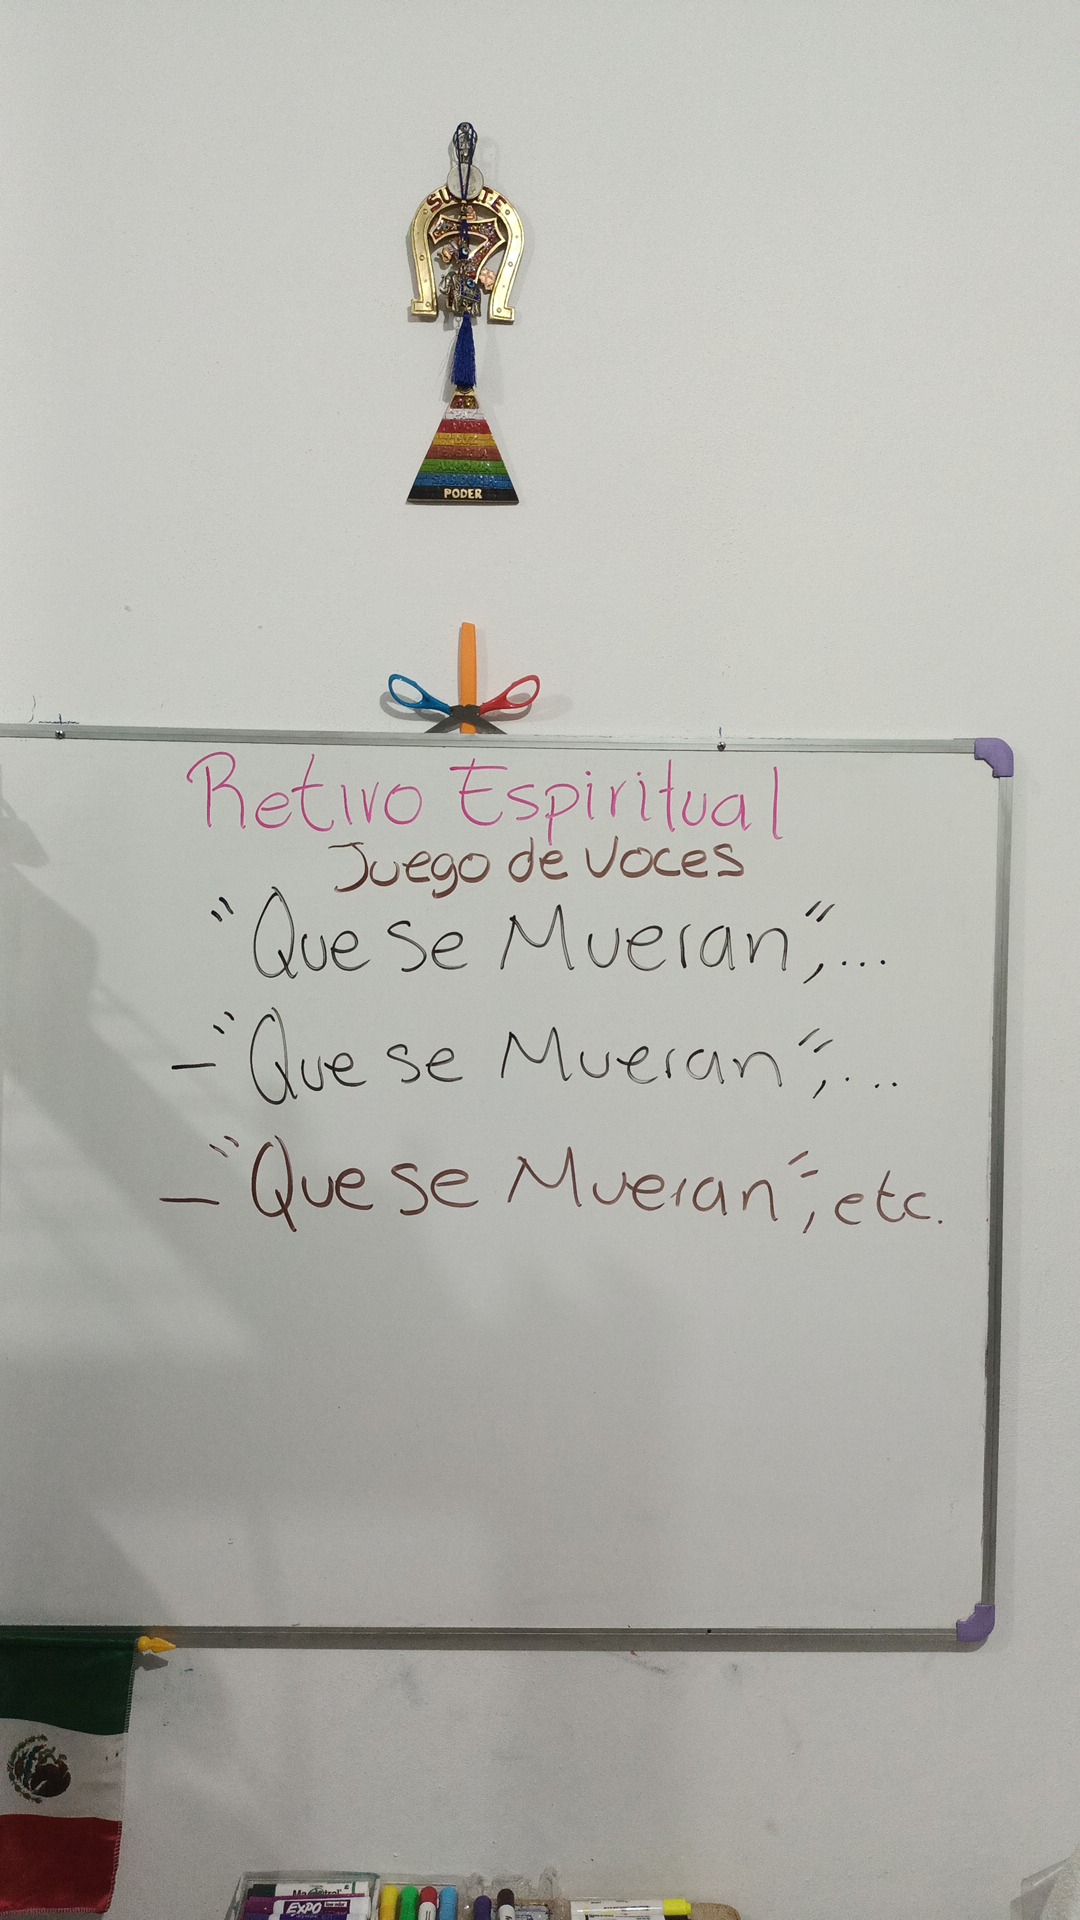 SUERTE
7
PAZ
PODER
Retiro Espiritual
Juego de Voces
"Que se Mueran", ...
- "Que se Mueran", ...
- "Que se Mueran", etc.
EXPO